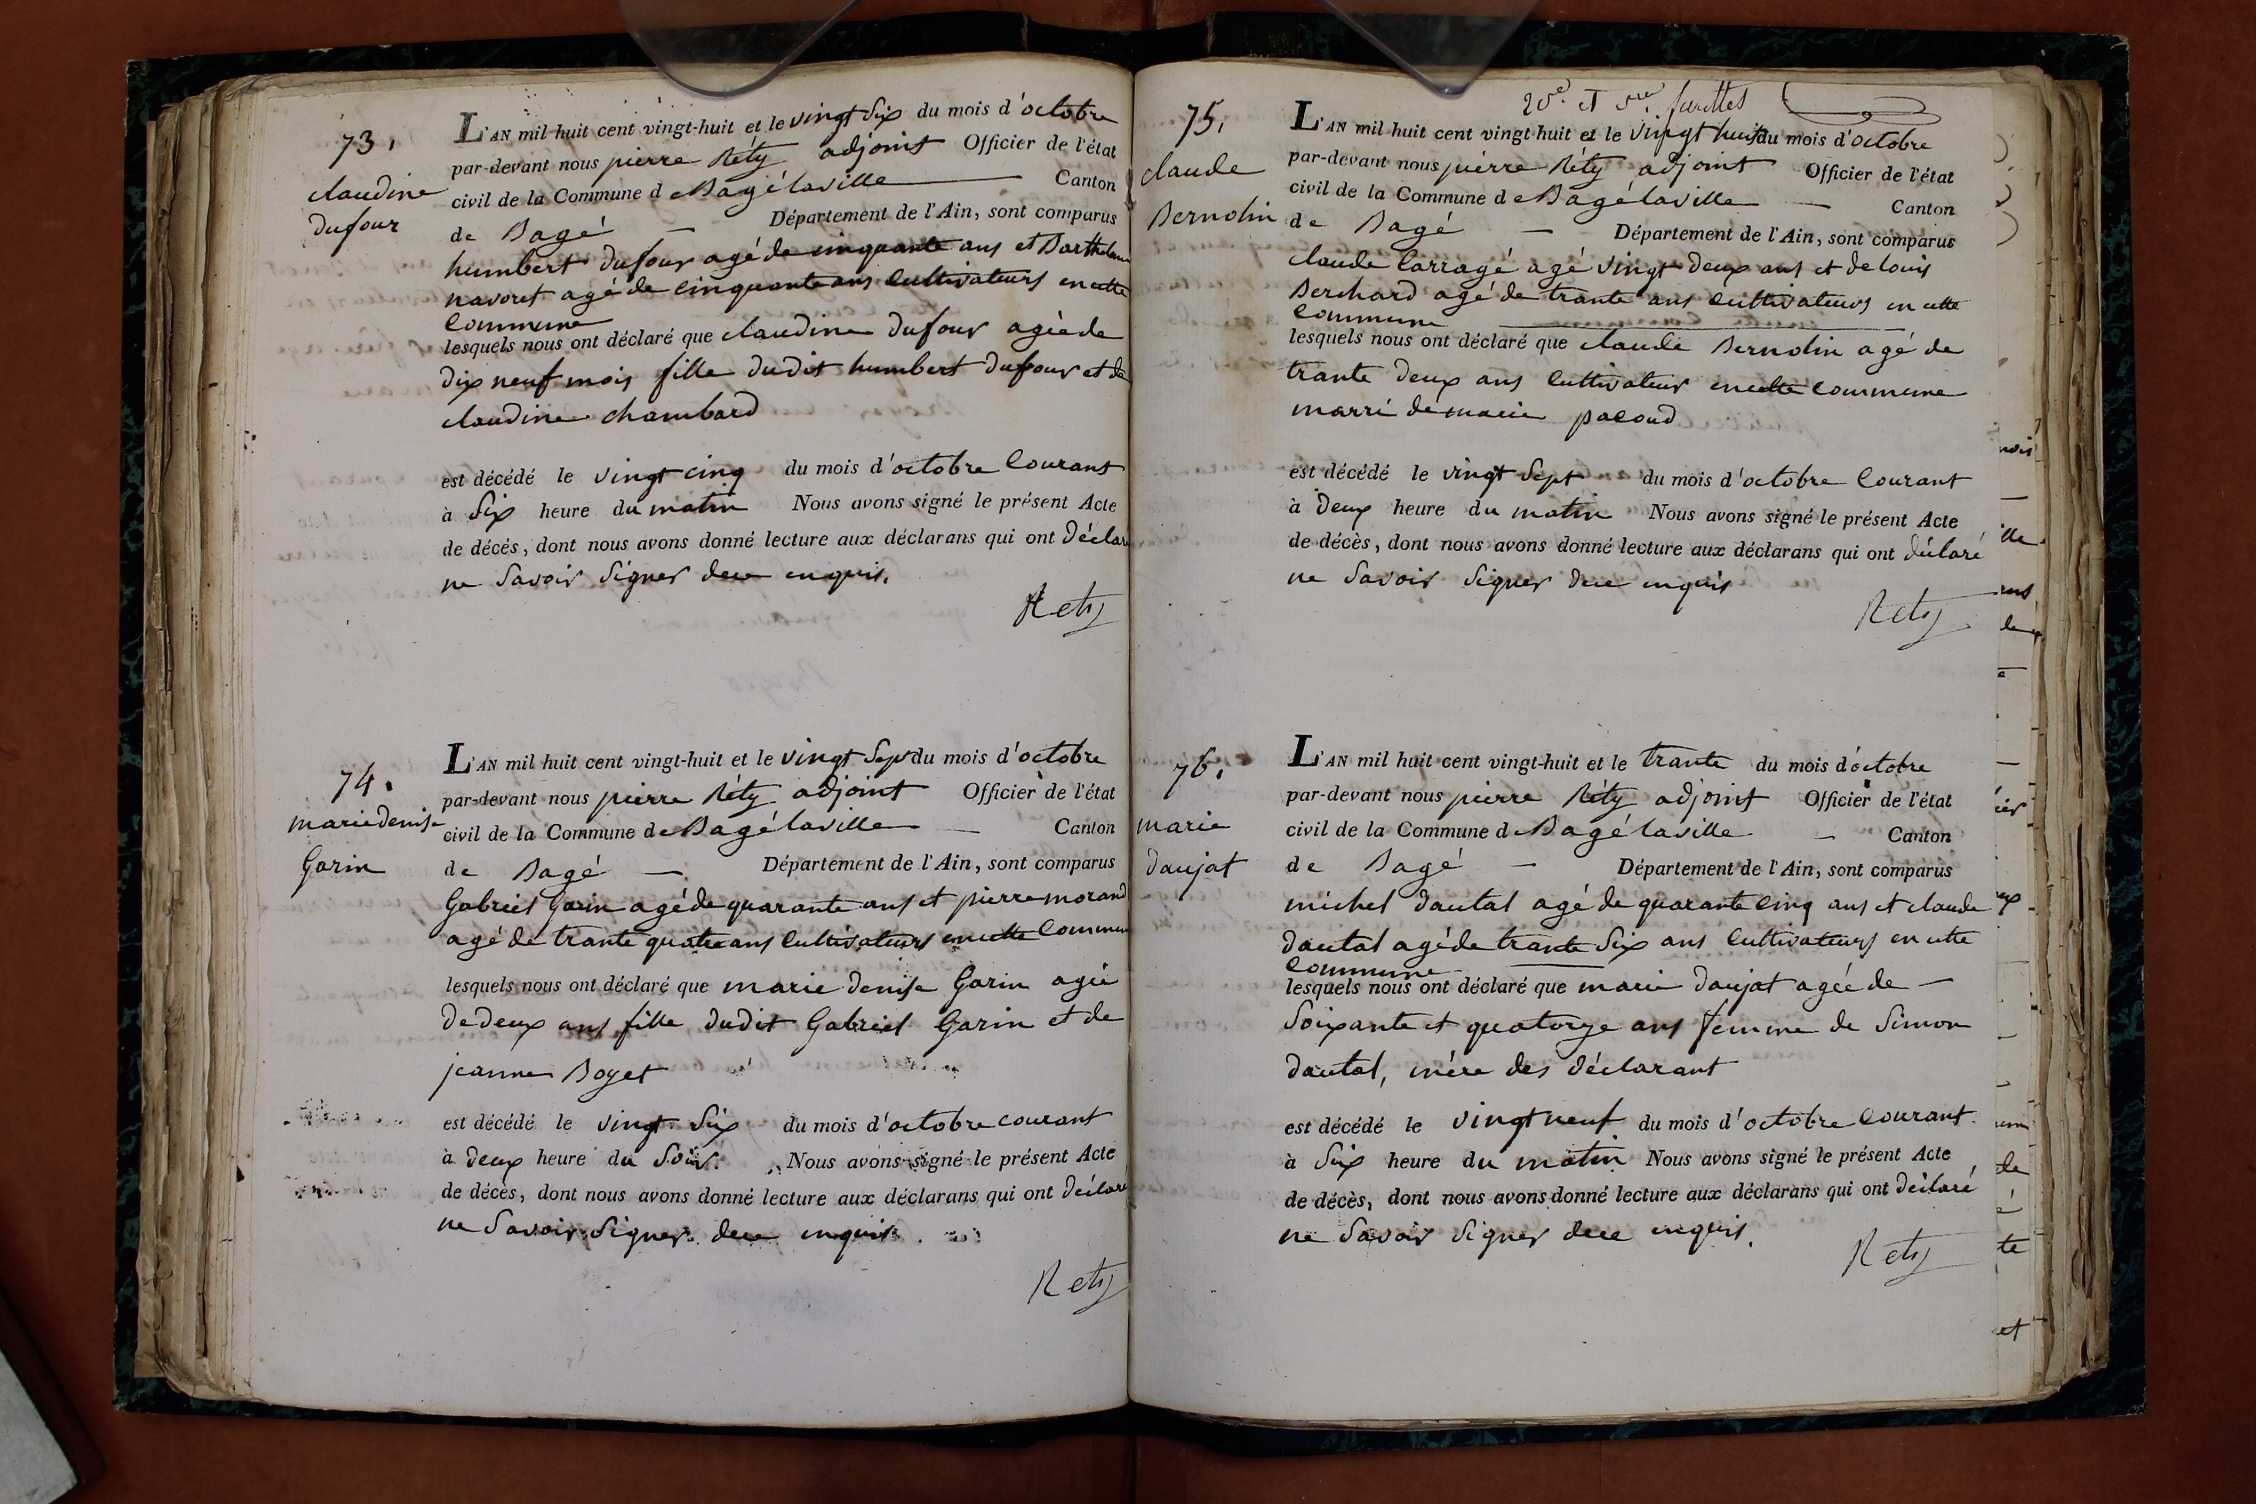 73.
claudine
dufour
L'AN mil huit cent vingt-huit et le vingt six du mois d'octobre
par-devant nous pierre Réty adjoint Officier de l'état
civil de la Commune de Bagé laville Canton
de Bagé — Département de l'Ain, sont comparus
humbert dufour agé de cinquante ans et Barthelem
navoret agé de cinquante ans Cultivateurs en cette
Commune
lesquels nous ont déclaré que claudine dufour agée de
dix neuf mois fille dudit humbert dufour et de
claudine chambard
est décédé le vingt cinq du mois d'octobre Courant
à Six heure du matin Nous avons signé le présent Acte
de décès, dont nous avons donné lecture aux déclarans qui ont déclaré
ne Savoir Signer dece enquis.
Rety
74.
marie denise
Garin
L'AN mil huit cent vingt-huit et le vingt Sept du mois d'octobre
par-devant nous pierre Réty adjoint Officier de l'état
civil de la Commune de Bagé laville — Canton
de Bagé — Département de l'Ain, sont comparus
Gabriel Garin agé de quarante ans et pierre morand
agé de trante quatre ans Cultivateurs en cette Commune
lesquels nous ont déclaré que marie denise Garin agée
de deux ans fille dudit Gabriel Garin et de
jeanne Boyet
est décédé le vingt Six du mois d'octobre courant
à deux heure du Soir. Nous avons signé le présent Acte
de décès, dont nous avons donné lecture aux déclarans qui ont déclaré
ne Savoir Signer dece enquis.
Rety
et
75.
claude
Bernolin
L'AN mil huit cent vingt-huit et le vingt huit du mois d'octobre
par-devant nous pierre Réty adjoint Officier de l'état
civil de la Commune de Bagé laville — Canton
de Bagé — Département de l'Ain, sont comparus
claude Carragé agé vingt deux ans et de louis
Berchard agé de trante ans Cultivateurs en cette
Commune
lesquels nous ont déclaré que claude Bernolin agé de
trante deux ans Cultivateur en cette Commune
marri de marie pacoud
est décédé le vingt Sept du mois d'octobre Courant
à Deux heure du matin Nous avons signé le présent Acte
de décès, dont nous avons donné lecture aux déclarans qui ont déclaré
ne Savoir Signer dece enquis
Rety
76.
marie
daujat
L'AN mil huit cent vingt-huit et le trante du mois d'octobre
par-devant nous pierre Réty adjoint Officier de l'état
civil de la Commune de Bagé laville — Canton
de Bagé — Département de l'Ain, sont comparus
michel dautal agé de quarante cinq ans et claude
dautal agé de trante Six ans Cultivateurs en cette
Commune
lesquels nous ont déclaré que marie daujat agée de —
Soixante et quatorze ans femme de Simon
dautal, mére des déclarant
est décédé le vingt neuf du mois d'octobre Courant
à Six heure du matin Nous avons signé le présent Acte
de décès, dont nous avons donné lecture aux déclarans qui ont déclaré
ne Savoir Signer dece enquis.
Rety